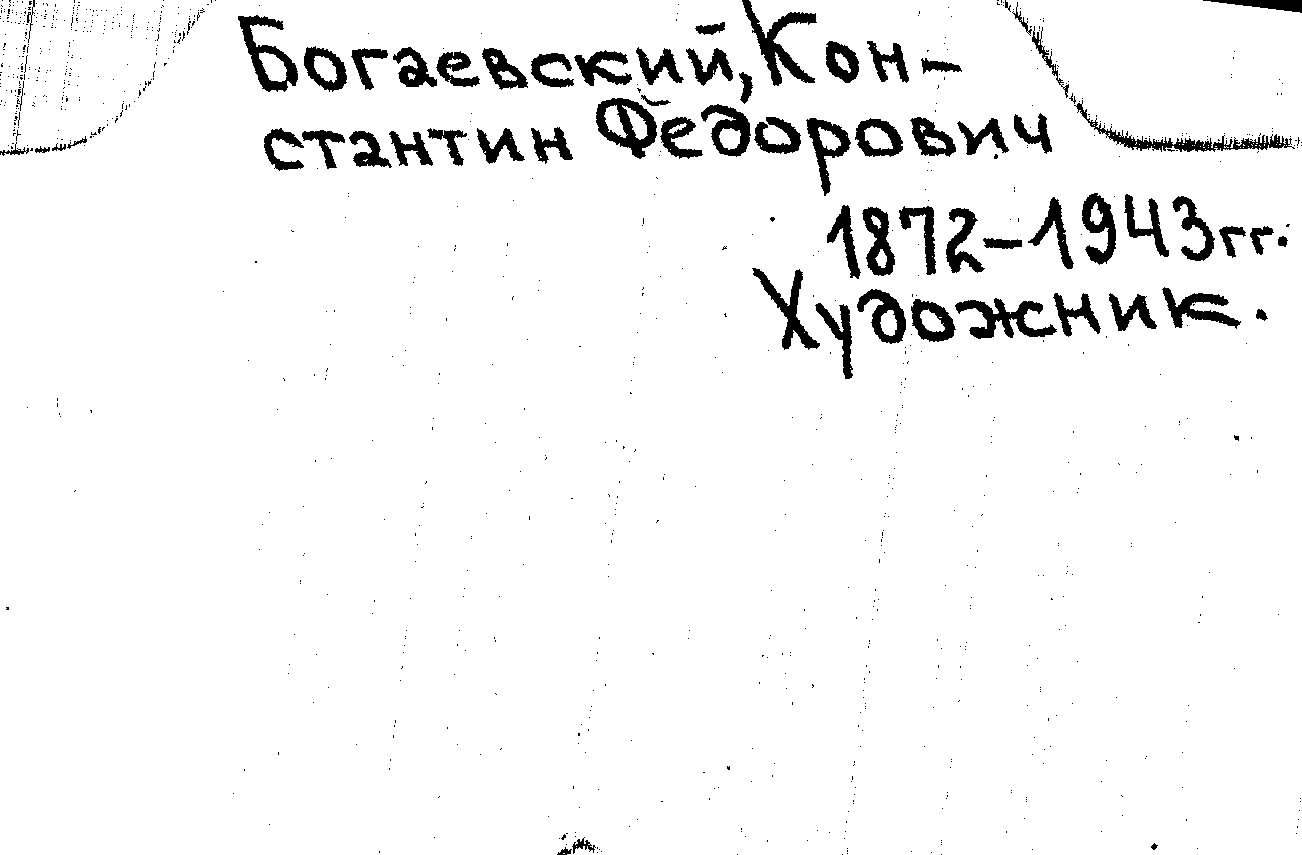 Богаевский, Кон-
стантин Федорович
1872-1943гг.
Художник.